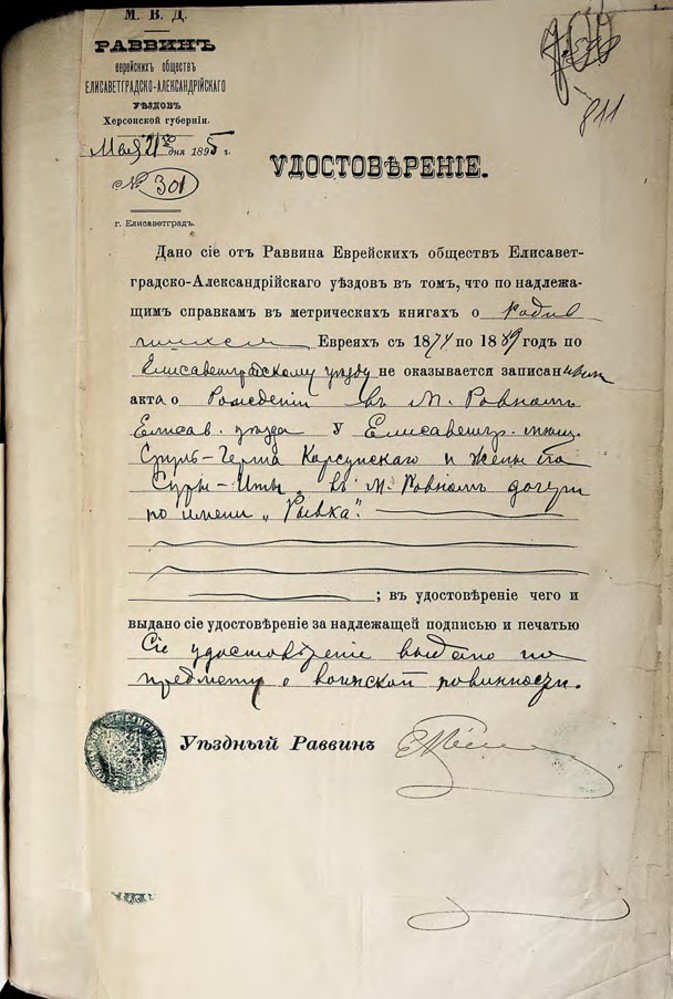 М. В. Д.
РАВВИНЪ
еврейскихъ обществъ
ЕЛИСАВЕТГРАДСКО-АЛЕКСАНДРІЙСКАГО
УѢЗДОВЪ
Херсонской губерніи.
Мая 21 дня 1895 г.
№ 301
г. Елисаветградъ.
811
УДОСТОВѢРЕНІЕ.
Дано сіе отъ Раввина Еврейскихъ обществъ Елисавет-
градско-Александрійскаго уѣздовъ въ томъ, что по надлежа-
щимъ справкамъ въ метрическихъ книгахъ о родив
шихся Евреяхъ съ 1874 по 1889 годъ по
Елисаветградскому уѣзду не оказывается записан
акта о Рожденіи въ м. Ровномъ
Елисав. уѣзда у Елисаветгр. мѣщ.
Сруль-Герша Корсунскаго и жены его
Суры-Иты, въ м. Ровномъ дочери
по имени „Рывка".
; въ удостовѣреніе чего и
выдано сіе удостовѣреніе за надлежащей подписью и печатью
Сіе удостовѣреніе выдано по
предмету о воинской повинности.
Уѣздный Раввинъ